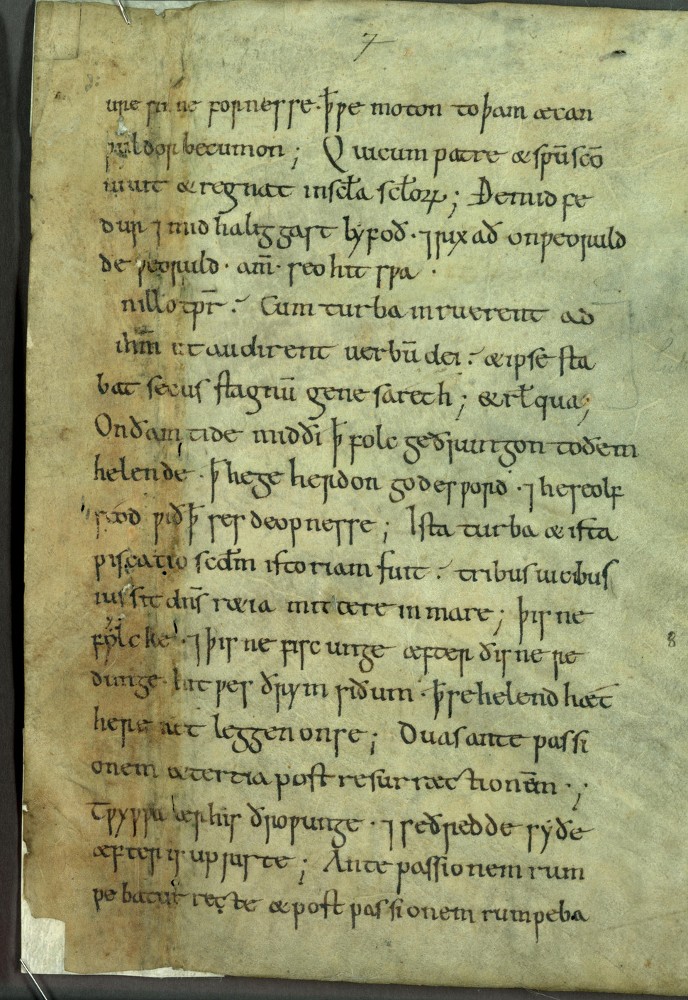 ⁊
ure sunne fornesse · ꝥ ƿe moton to þam æcan
ƿuldor becumon ; Qui cum patre & spū scō
uiuit & regnat in scl̄a scl̄oꝝ ; De mid fe
dur ⁊ mid halig gast lyfoð · ⁊ rixað on ƿeoruld
de ƿeoruld · am̄ · seo hit sƿa ·
n illo tp̄r · Cum turba inruerent ad
ihm̄ ut audirent uerbū dei · & ipse sta
bat secus stagnū genesarech ; & rl̄qua ;
On ðam tide middi ꝥ folc geðrungon to ðem
helende · ꝥ hege herdon godes ƿord · ⁊ he seolf
stod ƿið ꝥ ses deopnesse ; Ista turba & ista
piscatio scd̄m istoriam fuit · tribus uicibus
iussit dn̄s ræia mittere in mare ; þis ne
fylcke · ⁊ þis ne fisc unge æfter ðisne re
dinge hit ƿes ðrym siðum · ꝥ se helend hæt
here net leggen on se ; Duas ante passi
onem & tertia post resurrectionem · ;
Tƿyƿƿa ær his ðroƿunge · ⁊ se ðredde syðe
æfter is up riste ; Ante passionem rum
pebatur recte & post passionem rumpeba
8